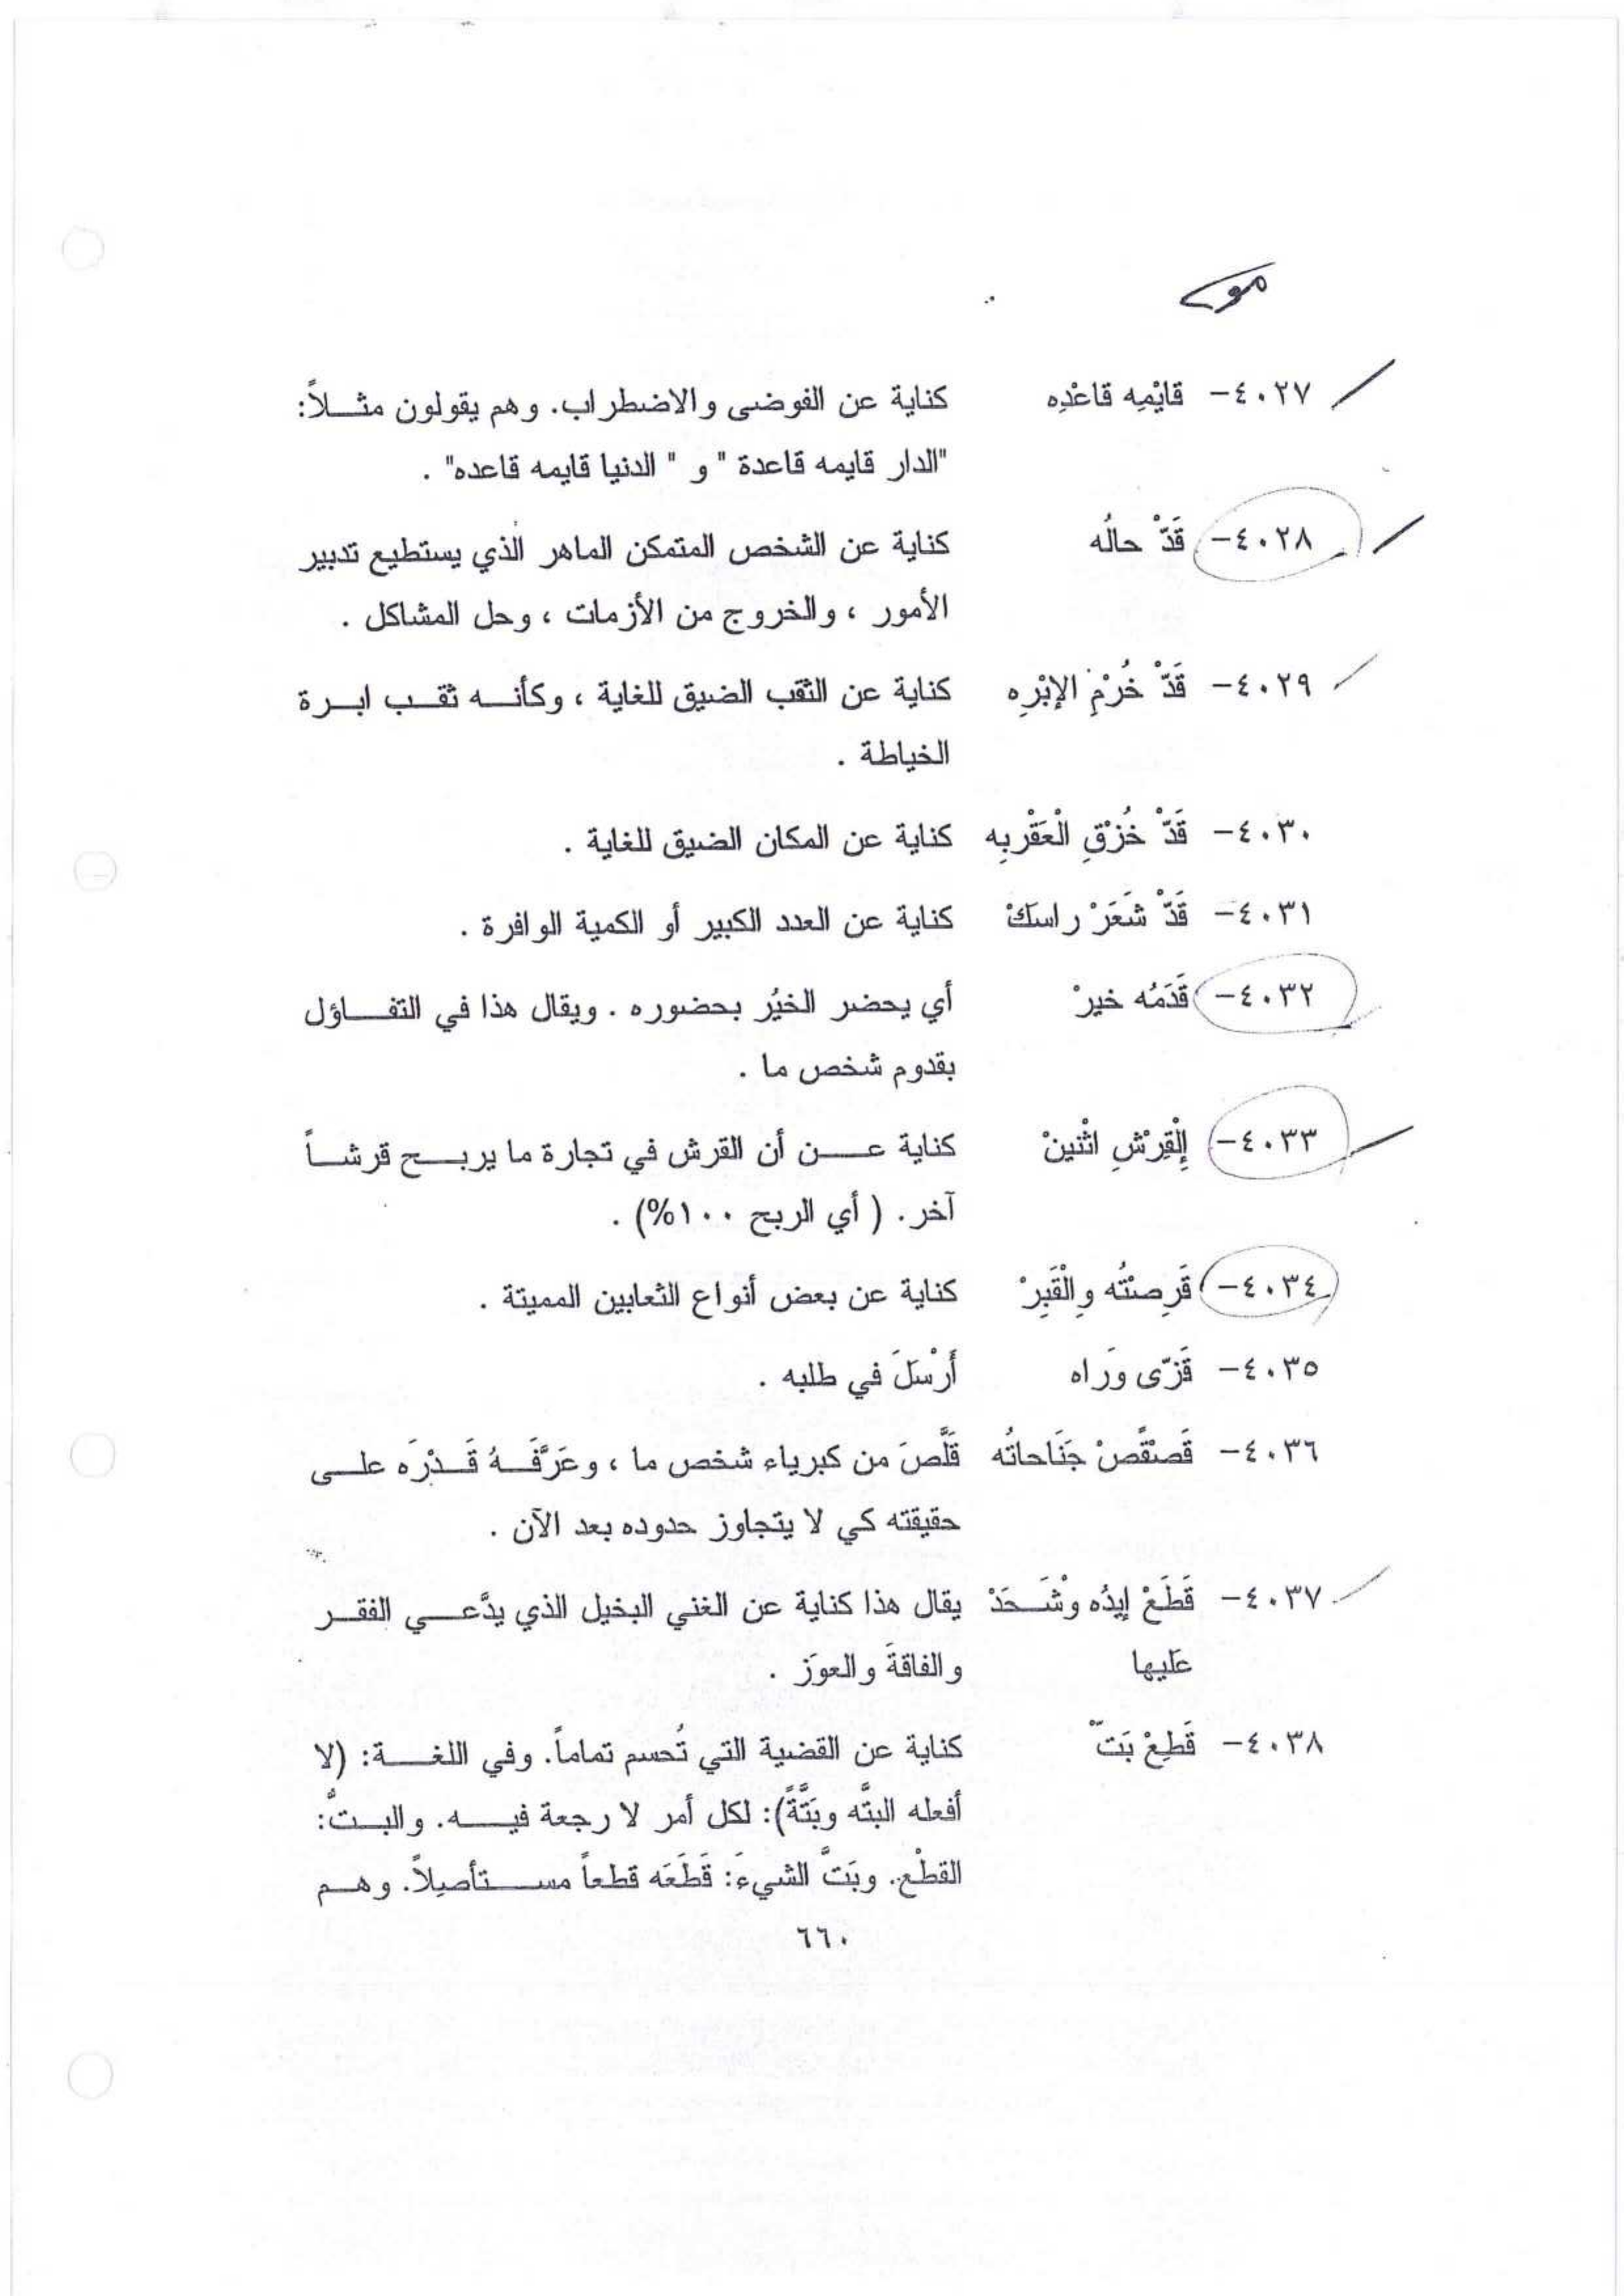 ٤٠٢٧- قايْمِه قاعْدِه كناية عن الفوضى والاضطراب. وهم يقولون مثلاً:
"الدار قايمه قاعدة " و " الدنيا قايمه قاعده" .
٤٠٢٨- قَدّْ حالُه كناية عن الشخص المتمكن الماهر الذي يستطيع تدبير
الأمور ، والخروج من الأزمات ، وحل المشاكل .
٤٠٢٩- قَدّْ خُرْمِ الإبْرِه كناية عن الثقب الضيق للغاية ، وكأنه ثقب ابرة
الخياطة .
٤٠٣٠- قَدّْ خُزْقِ الْعَقْربِه كناية عن المكان الضيق للغاية .
٤٠٣١- قَدّْ شَعَرْ راسَكْ كناية عن العدد الكبير أو الكمية الوافرة .
٤٠٣٢- قَدَمُه خيرْ أي يحضر الخيُر بحضوره . ويقال هذا في التفاؤل
بقدوم شخص ما .
٤٠٣٣- إِلْقِرْشِ اثْنينْ كناية عن أن القرش في تجارة ما يربح قرشاً
آخر. ( أي الربح ١٠٠%) .
٤٠٣٤- قَرِصْتُه والْقَبِرْ كناية عن بعض أنواع الثعابين المميتة .
٤٠٣٥- قَزّى وَراه أَرْسَلَ في طلبه .
٤٠٣٦- قَصْقَصْ جَنَاحاتُه قَلَّصَ من كبرياء شخص ما ، وعَرَّفَهُ قَدْرَه على
حقيقته كي لا يتجاوز حدوده بعد الآن .
٤٠٣٧- قَطَعْ إيدُه وْشَحَدْ يقال هذا كناية عن الغني البخيل الذي يدَّعي الفقر
عَليها والفاقةَ والعوَز .
٤٠٣٨- قَطِعْ بَتّْ كناية عن القضية التي تُحسم تماماً. وفي اللغة: (لا
أفعله البتَّه وبَتَّةً): لكل أمر لا رجعة فيه. والبتُّ:
القطْع. وبَتَّ الشيءَ: قَطَعَه قطعاً مستأصيلاً. وهم
٦٦٠